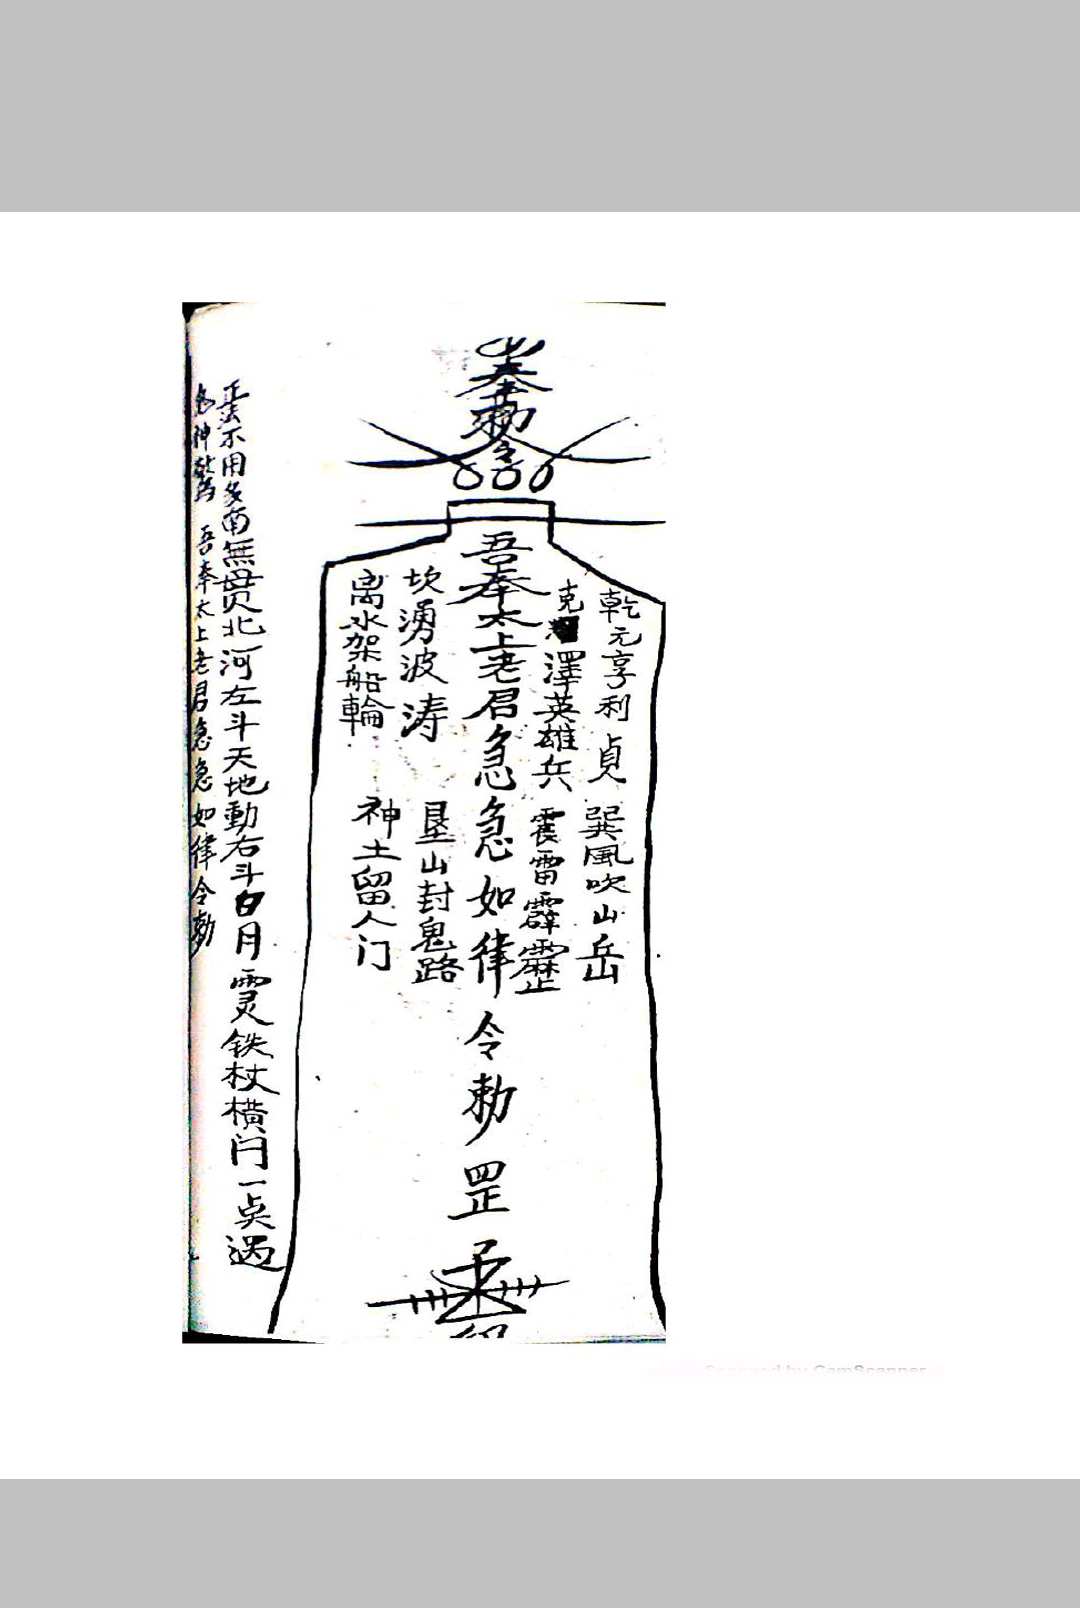 奉勅令
乾元亨利貞
巽風吹山岳
克澤英雄兵
震雷霹靂
吾奉太上老君急急如律令勅罡
坎湧波涛
垦山封鬼路
离水架船輪
神土留人门
正法不用多南無毋贯北河左斗天地動右斗日月霊铁杖横闩一点遇
鬼神驚 吾奉太上老君急急如律令勅
Scanned by CamScanner